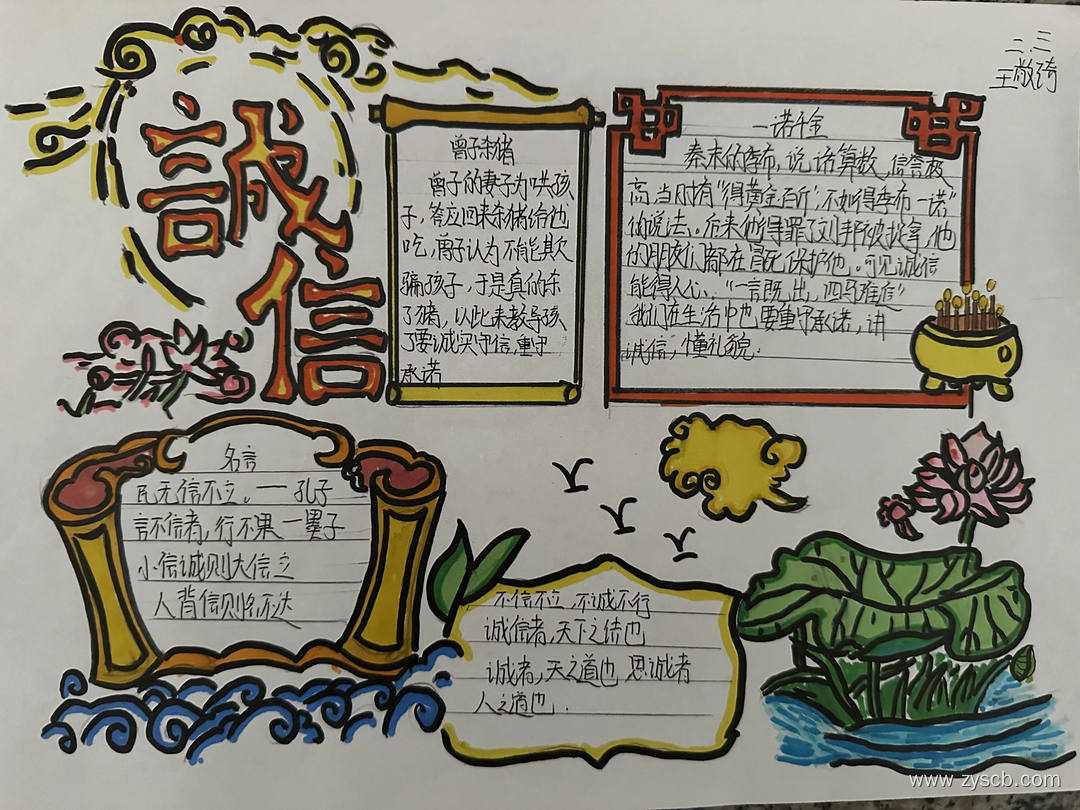 二.三
王敬琦
誠
信
曾子杀猪
曾子的妻子为哄孩
子，答应回来杀猪给他
吃，曾子认为不能欺
骗孩子，于是真的杀
了猪，以此来教导孩
子要诚实守信，重守
承诺
一诺千金
秦末的季布，说话算数，信誉极
高，当时有“得黄金百斤，不如得季布一诺”
的说法。后来他得罪了刘邦被捉拿，他
的朋友们都在冒死保护他。可见诚信
能得人心，“一言既出，四马难追”
我们在生活中也要重守承诺，讲
诚信，懂礼貌.
名言
民无信不立。一孔子
言不信者，行不果一墨子
小信诚则大信立
人背信则名不达
不信不立，不诚不行
诚信者，天下之结也
诚者，天之道也 思诚者
人之道也.
www.zyscb.com